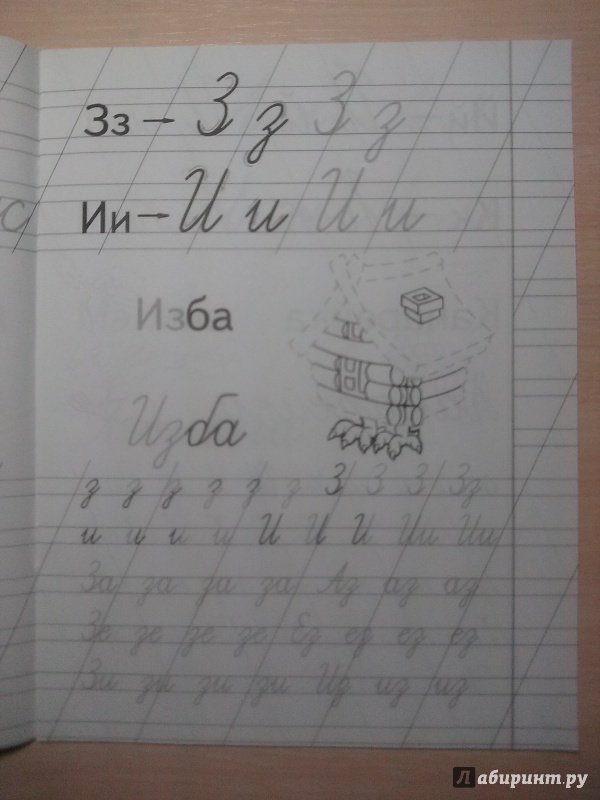 Зз → З з З з
Ии → И и И и
Изба
Изба
з з з з з з З З З Зз
и и и и И И И Ии Ии
За за за за Аз аз аз
Зе зе зе зе Ез ез ез ез
Зи зи зи зи Из из из
Лабиринт.ру